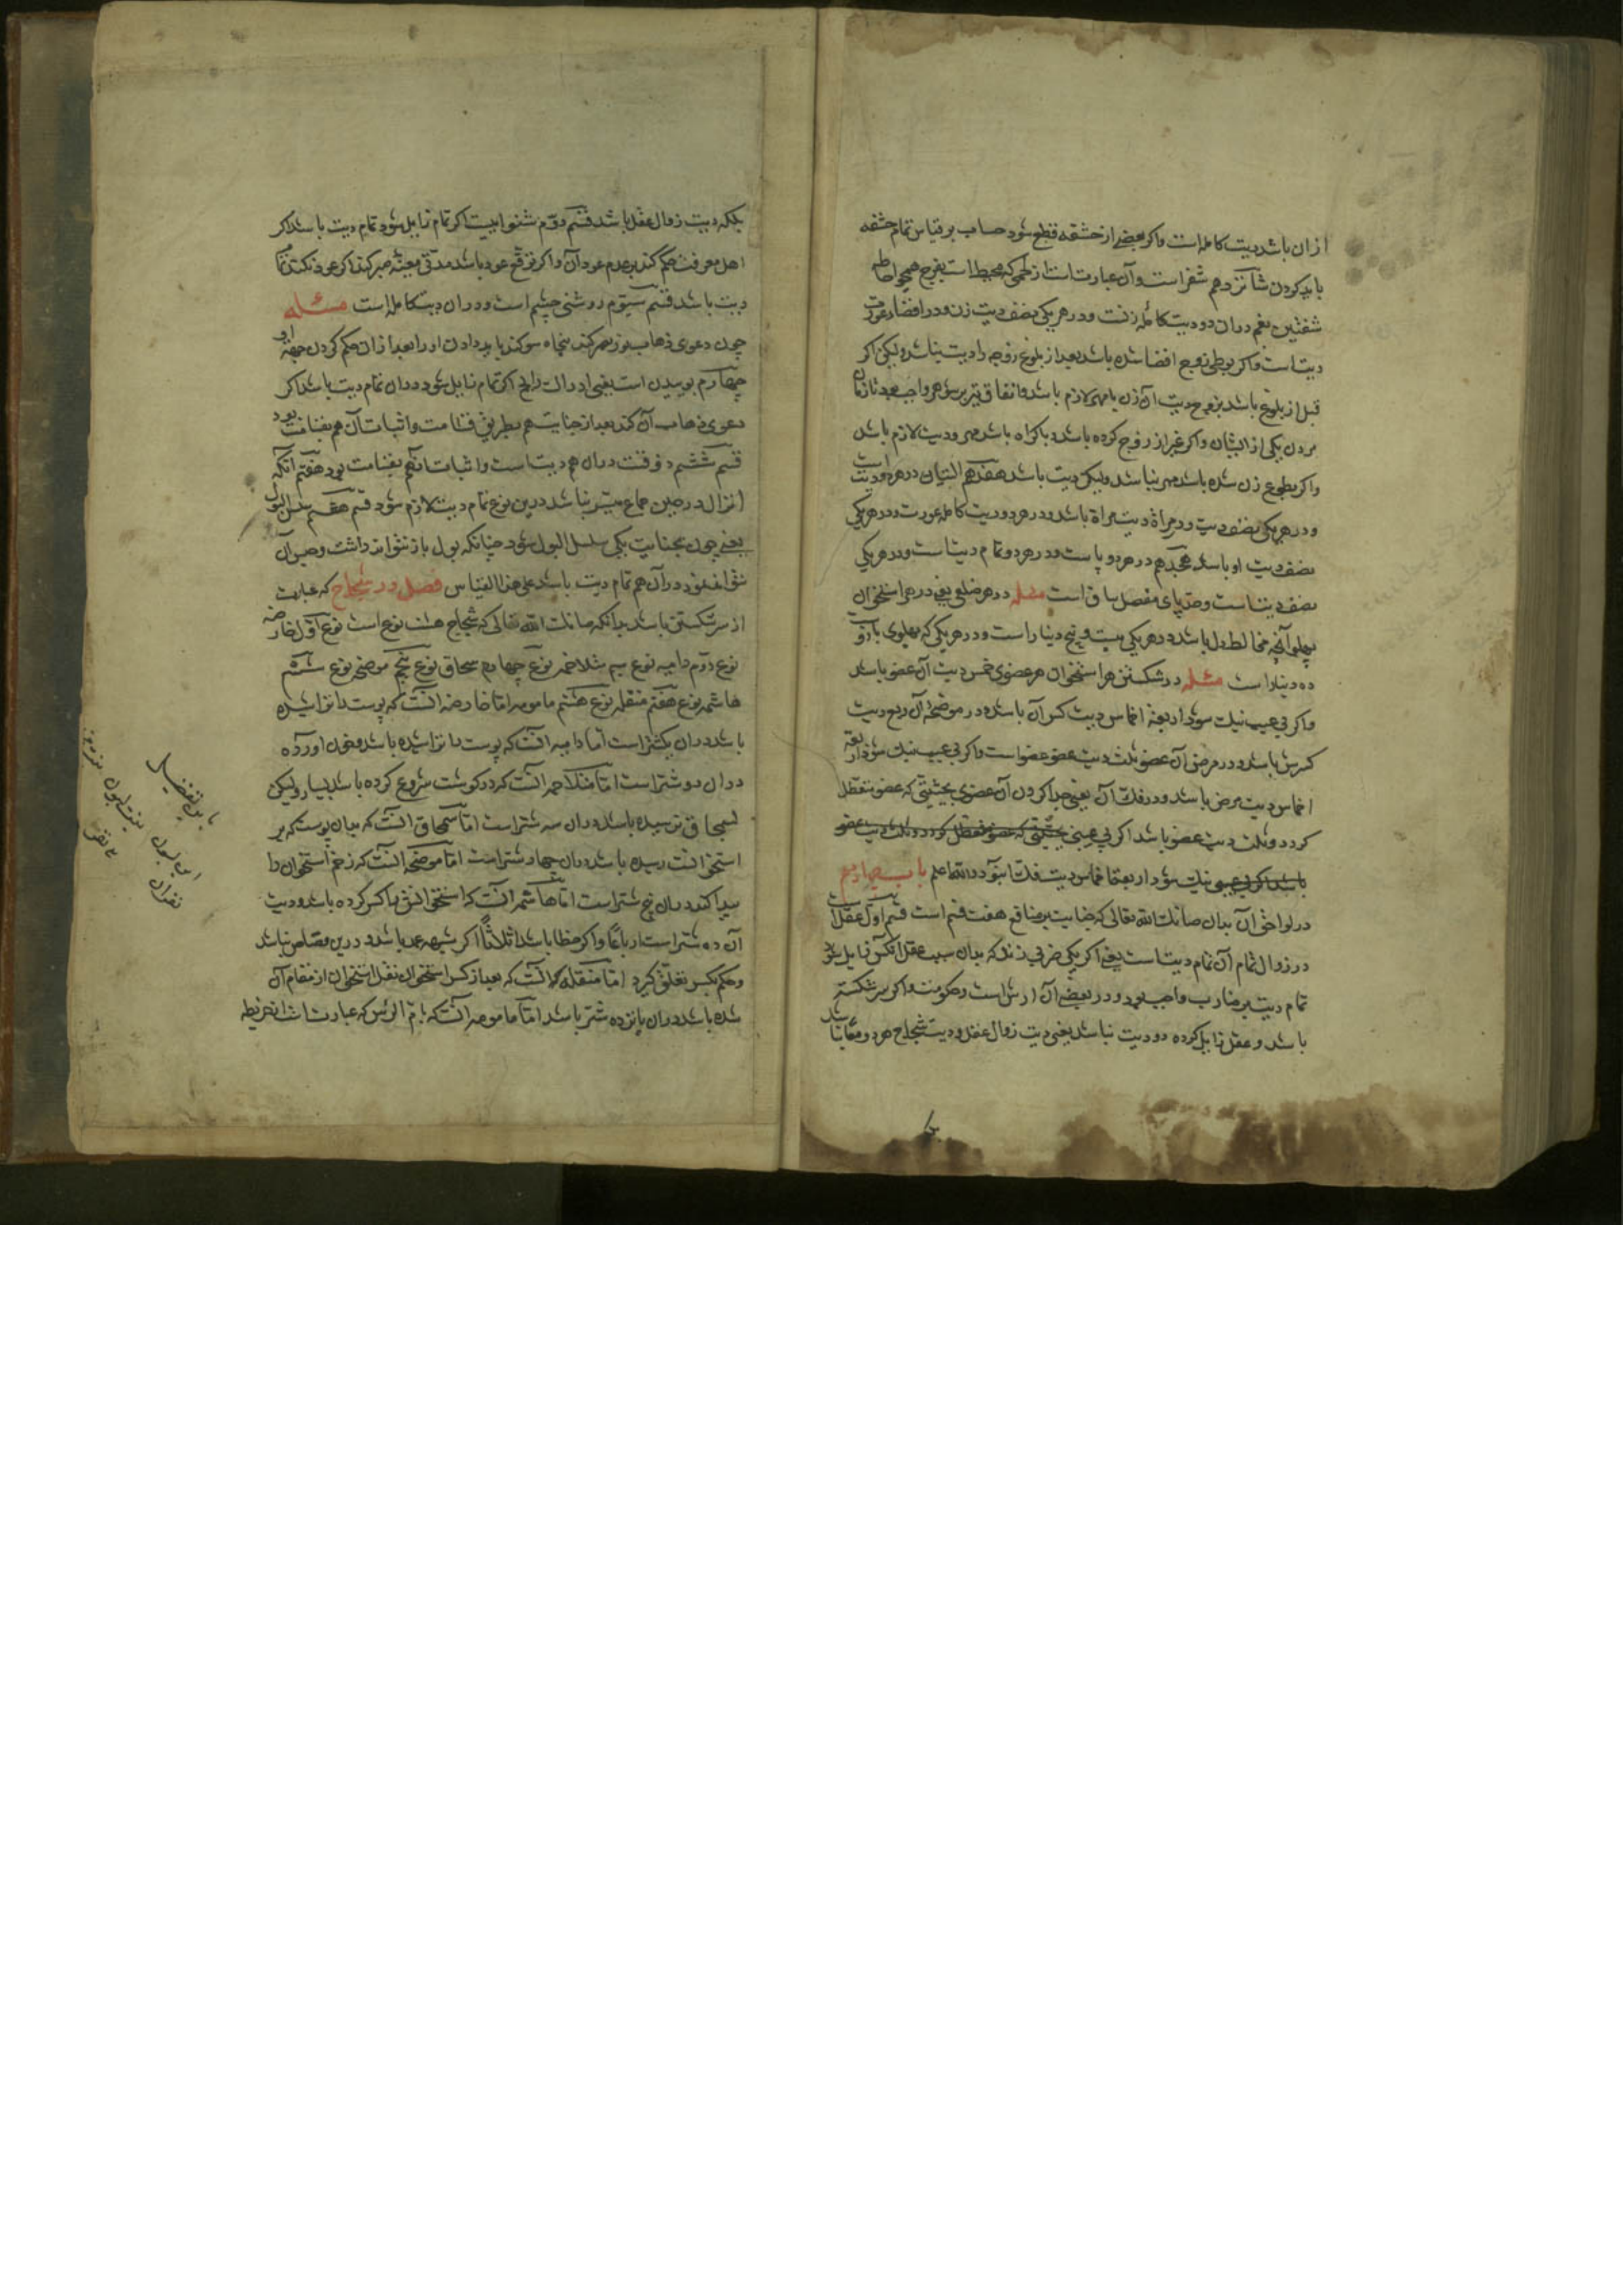 ازان باشد دیت کامله است و اکر بعضی از حشفه قطع شود حساب بر قیاس تمام حشفه
باید کردن شانزدهم شفر است و آن عبارتست از لحمی که محیط است بفرج همچو احاطه
شفتین بفم دران دو دیت کامله زنست و در هر یکی نصف دیت زن و در افضاء عورت
دیتست و اکر بوطی زوج افضا شده باشد بعد از بلوغ زوجه را دیت نباشد ولیکن اکر
قبل از بلوغ باشد بزوج دیت آن زن با مهر لازم باشد و انفاق نیز بر شوهر واجب بود تا زمان
مردن یکی از ایشان و اکر غیر از زوج کرده باشد و باکراه باشد مهر و دیت لازم باشد
و اکر بطوع زن شده باشد مهر نباشد ولیکن دیت باشد هفدهم الیتان در هر دو دیت است
و در هر یکی نصف دیت و در مراة دیت مراة باشد و در هر دو دیت کامله عورت و در هر یکی
نصف دیت او باشد هجدهم در هر دو پاست و در هر دو تمام دیتست و در هر یکی
نصف دیتست و حد پای مفصل ساق است مسئله در هر ضلعی یعنی در هر استخوان
پهلو آنچه مخالط دل باشد در هر یکی بیست و پنج دینار است و در هر یکی که پهلوی بازوست
ده دینار است مسئله در شکستن هر استخوان هر عضوی خمس دیت آن عضو باشد
و اکر بی عیب نیک شود اربعة اخماس دیت کسر آن باشد و در موضحه آن ربع دیت
کسرش باشد و در مرض آن عضو ثلث دیت عضو است و اکر بی عیب نیک شود اربعة
اخماس دیت مرض باشد و در فک آن یعنی جدا کردن آن عضوی بحیثیتی که عضو متعطل
کردد و ثلث دیت عضو باشد اکر بی عیبی بحیثیتی که عضو متعطل کردد و ثلث دیت عضو
باشد اکر بی عیبی نیک شود اربعة اخماس دیت فکست بود والله اعلم باب چهاردهم
در لواحق آن بدان صانک الله تعالی که جنایت بر منافع هفت قسم است قسم اول عقل است
در زوال تمام آن تمام دیتست یعنی اکر یکی ضربی زند که بدان سبب عقل آنکس زایل شود
تمام دیت بر ضارب واجب بود و در بعضی آن ارش است و حکومت و اکر سر شکسته
باشد و عقل زایل کرده دو دیت نباشد یعنی دیت زوال عقل و دیت شجاج هر دو معا نباشد
بلکه دیت زوال عقل باشد قسم دوم شنواییست اکر تمام زایل شود تمام دیت باشد اکر
اهل معرفت حکم کنند بر عدم عود آن و اکر توقع عود باشد مدتی معینه صبر کنند اکر عود نکند تمام
دیت باشد قسم سیوم روشنی چشم است و دران دیت کامله است مسئله
چون دعوی ذهاب نور بصر کند پنجاه سوکند باید دادن او را بعد ازان حکم کردن بحق او
چهارم بوییدن است یعنی ادراک رایحه اکر تمام زایل شود دران تمام دیت باشد اکر
دعوی ذهاب آن کند بعد از جنایت هم بطریق قسامت و اثبات آن هم بقسامت بود
قسم ششم ذوقست دران هم دیتست و اثبات آنهم بقسامت بود هفتم آنکه
انزال در حین جماع میسر نباشد درین نوع تمام دیت لازم شود قسم هفتم سلس البول
یعنی چون بجنایت یکی سلسل البول شود چنانکه بول باز نتواند داشت و حبس آن
نتواند نمود دران هم تمام دیت باشد علی هذا القیاس فصل در شجاج که عبارت
از سر شکستن باشد بدانکه صانک الله تعالی که شجاج هشت نوع است نوع اول خارصه
نوع دوم دامیه نوع سیم متلاحمه نوع چهارم سمحاق نوع پنجم موضحه نوع ششم
هاشمه نوع هفتم منقله نوع هشتم مامومه اما خارصه آنست که پوست را خراشیده
باشد دران یکشتر است اما دامیه آنست که پوست را خراشیده باشد و خون آورده
دران دو شتر است اما متلاحمه آنست که در کوشت شروع کرده باشد بسیار ولیکن
بسمحاق نرسیده باشد دران سه شتر است اما سمحاق آنست که بدان پوست که بر
استخوانست رسیده باشد دران چهار شتر است اما موضحه آنست که زخم استخوان را
پیدا کند دران پنج شتر است اما هاشمه آنست که استخوانش را کسر کرده باشد و دیت
آن ده شتر است ارباعا و اکر خطا باشد و اثلاثا اکر شبیه عمد باشد و درین قصاص نباشد
و حکم بکسر تعلق کیرد اما منقله آنست که بعد از کسر استخوان نقل استخوان از مقام آن
شده باشد دران پانزده شتر باشد اما مامومه آنست که بام الراس که عبارتست از خریطه